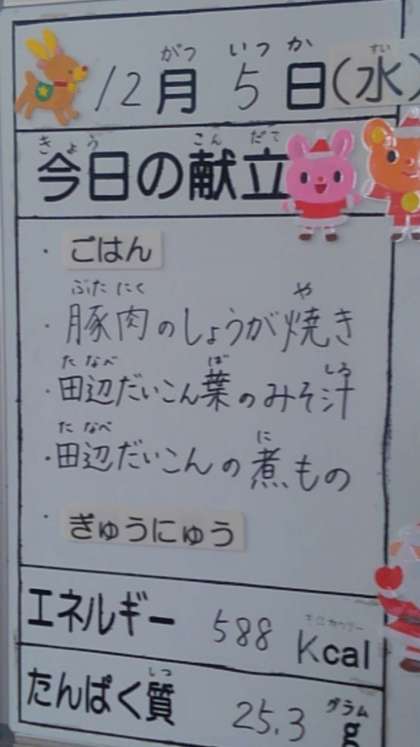 がつ いつ か すい
12月 5日(水)
きょう こんだて
今日の献立
・ごはん
ぶたにく や
・豚肉のしょうが焼き
たなべ ば しる
・田辺だいこん葉のみそ汁
たなべ に
・田辺だいこんの煮もの
・ぎゅうにゅう
エネルギー 588 Kcal
しつ グラム
たんぱく質 25.3 g